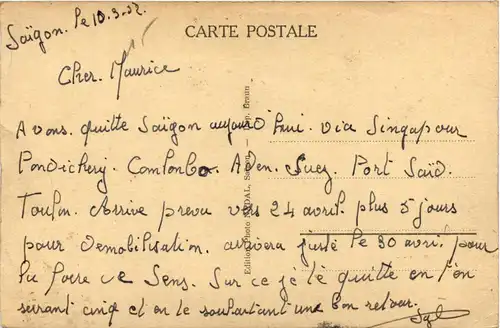 Saïgon. le 10.3.52.
CARTE POSTALE
Cher. Maurice
Avons. quitte Saïgon aujourd'hui. via Singapour
Pondichery. Comlombo. Aden. Suez. Port Saïd.
Toulon. Arrive prevu vers 24 avril. plus 5 jours
pour demobilisation. arrivera juste le 30 avril pour
la foire de Sens. Sur ce je te quitte en t'en
serrant cinq et en te souhaitant une bon retour.
Edition Photo NADAL, Saigon. — Imp. Braun